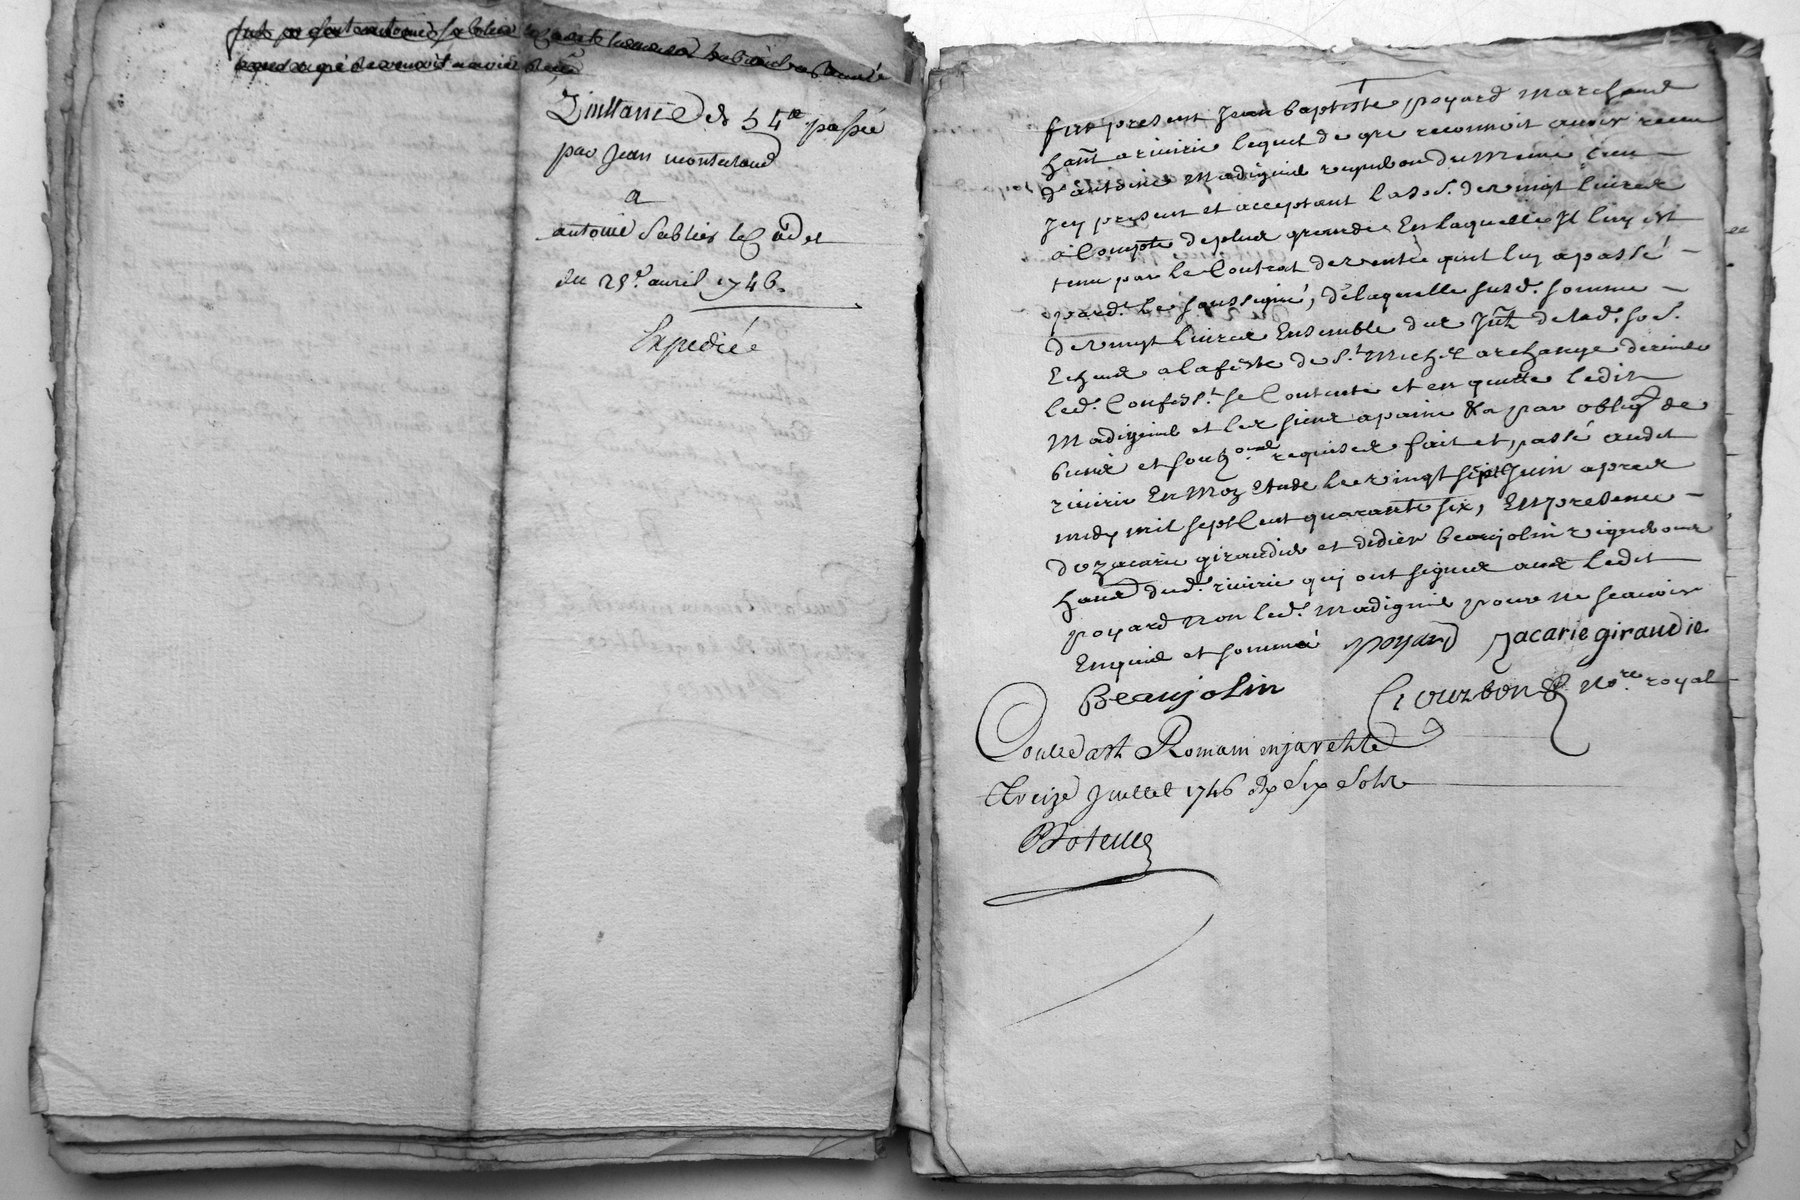 Quittance de 54# passée
par Jean monteraud
a
antoine Sablier le Cadet
du 25e. avril 1746.
Expediée
fut present Jean baptiste poyard Marchand
hant a riverie lequel de gré reconnoit avoir receu
d'antoine Madigner vigneron du Meme lieu
Icy present et acceptant la so.e. de vingt livres
a Compte de plus grande En laquelle Il luy est
tenu par le Contrat de vente quil luy a passé
pard.t le soussigné, de laquelle susd. somme
de vingt livres Ensemble des Ints de lad. so.e.
Echeus a la feste de St. Michel archange derniere
led. Confess.t se Contente et en quitte ledit
Madigner et les siens a paine &a par oblig.on de
biens et soub.ons requises fait et passé audit
riverie En Mon Etude le vingt sept Juin apres
midy mil sept Cent quarante six, En presence
de zacarie giraudier et didier beaujolin vignerons
hants dud. riverie qui ont signer avec ledit
poyard non led. Madignier pour ne scavoir
Enquis et sommé poyard zacarie giraudie
Beaujolin Crouzbon No.re royal
Controllé a St Romain en jarest le
treize Juillet 1746 R. Six Sols